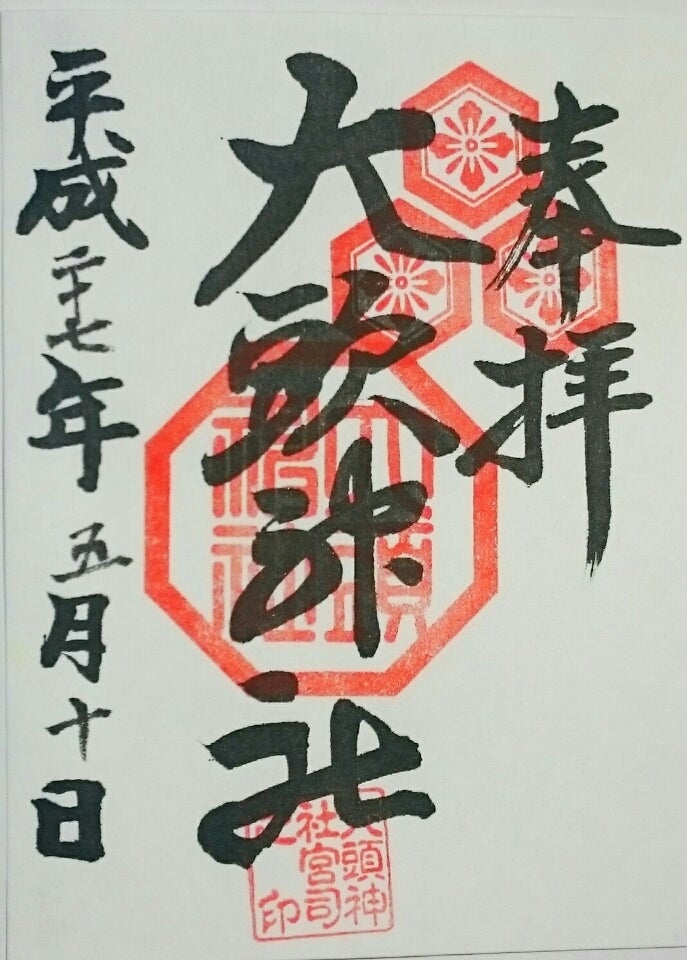 奉拝
大頭神社
平成二十七年五月十日
大頭神社
大頭神社宮司之印